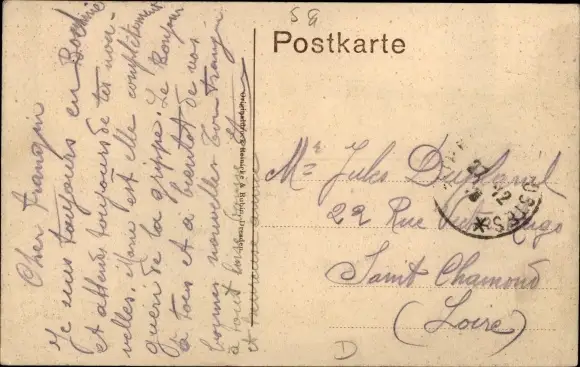 58
Postkarte
Cher frangin
Je suis toujours en Bochie
et attends toujours de tes nou-
velles. Marie est elle complètement
guéri de la grippe. Le bonjour
à tous et à bientôt de vos
bonnes nouvelles Ton frangin
à tous
et heureuse année
Mr Jules
22 Rue Victor Hugo
Saint Chamond
(Loire)
D